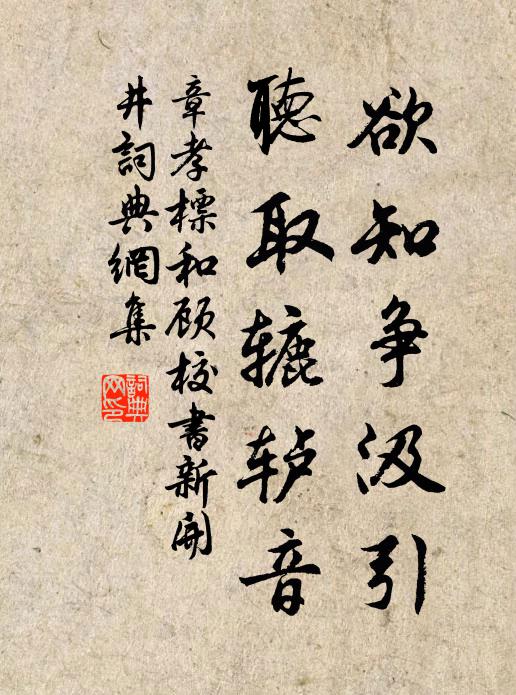 欲知争汲引
聽取辘轳音
章孝標和顾校書新開
井詞典網集
詞典
网印